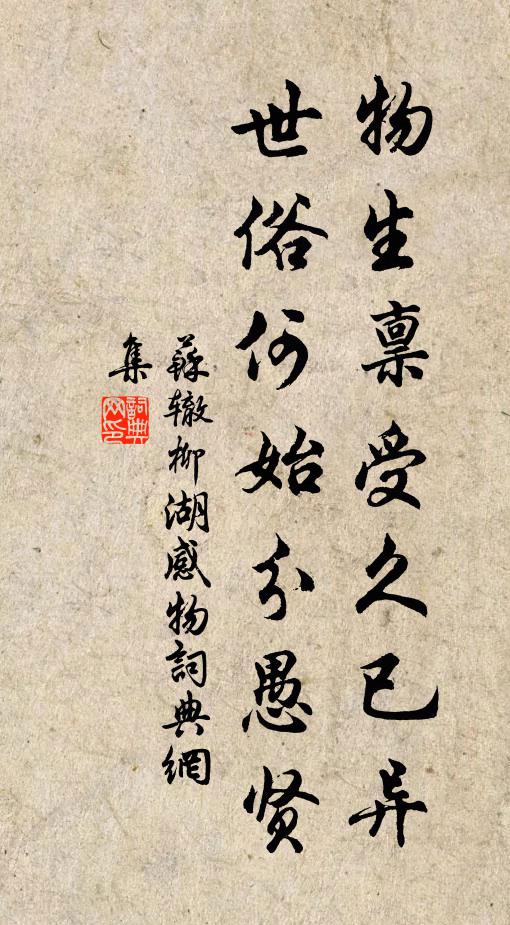 物生禀受久已异
世俗何始分愚贤
蘇辙柳湖感物詞典網
集
詞典网印